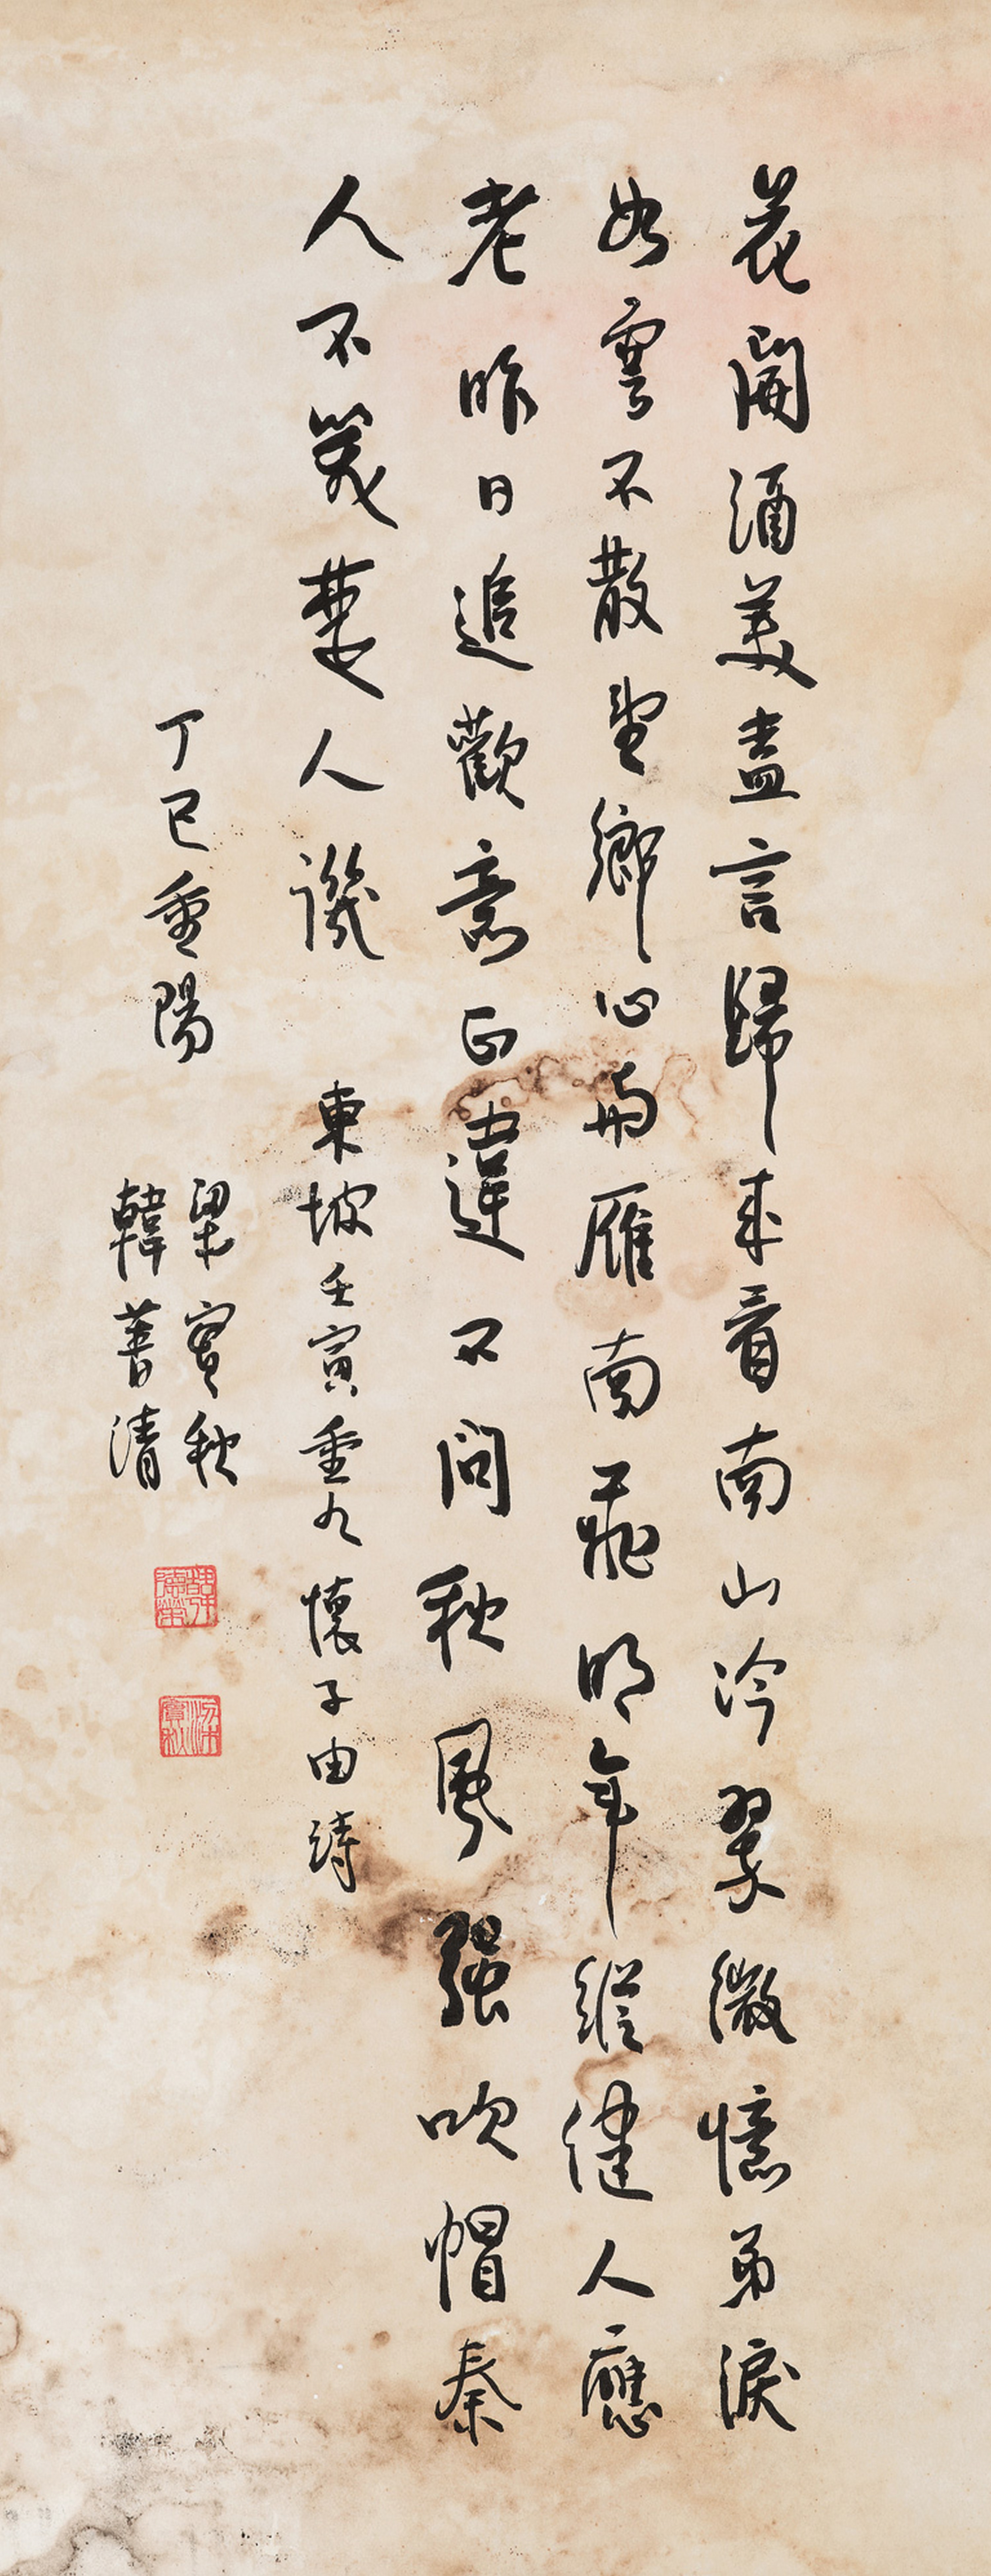 花開酒美盍言歸來看南山冷翠微憶弟淚
如雲不散望鄉心與雁南飛明年縱健人應
老昨日追歡意正違不問秋風強吹帽秦
人不笑楚人譏 東坡壬寅重九懷子由詩
丁巳重陽
梁實秋
韓菁清
梁實秋